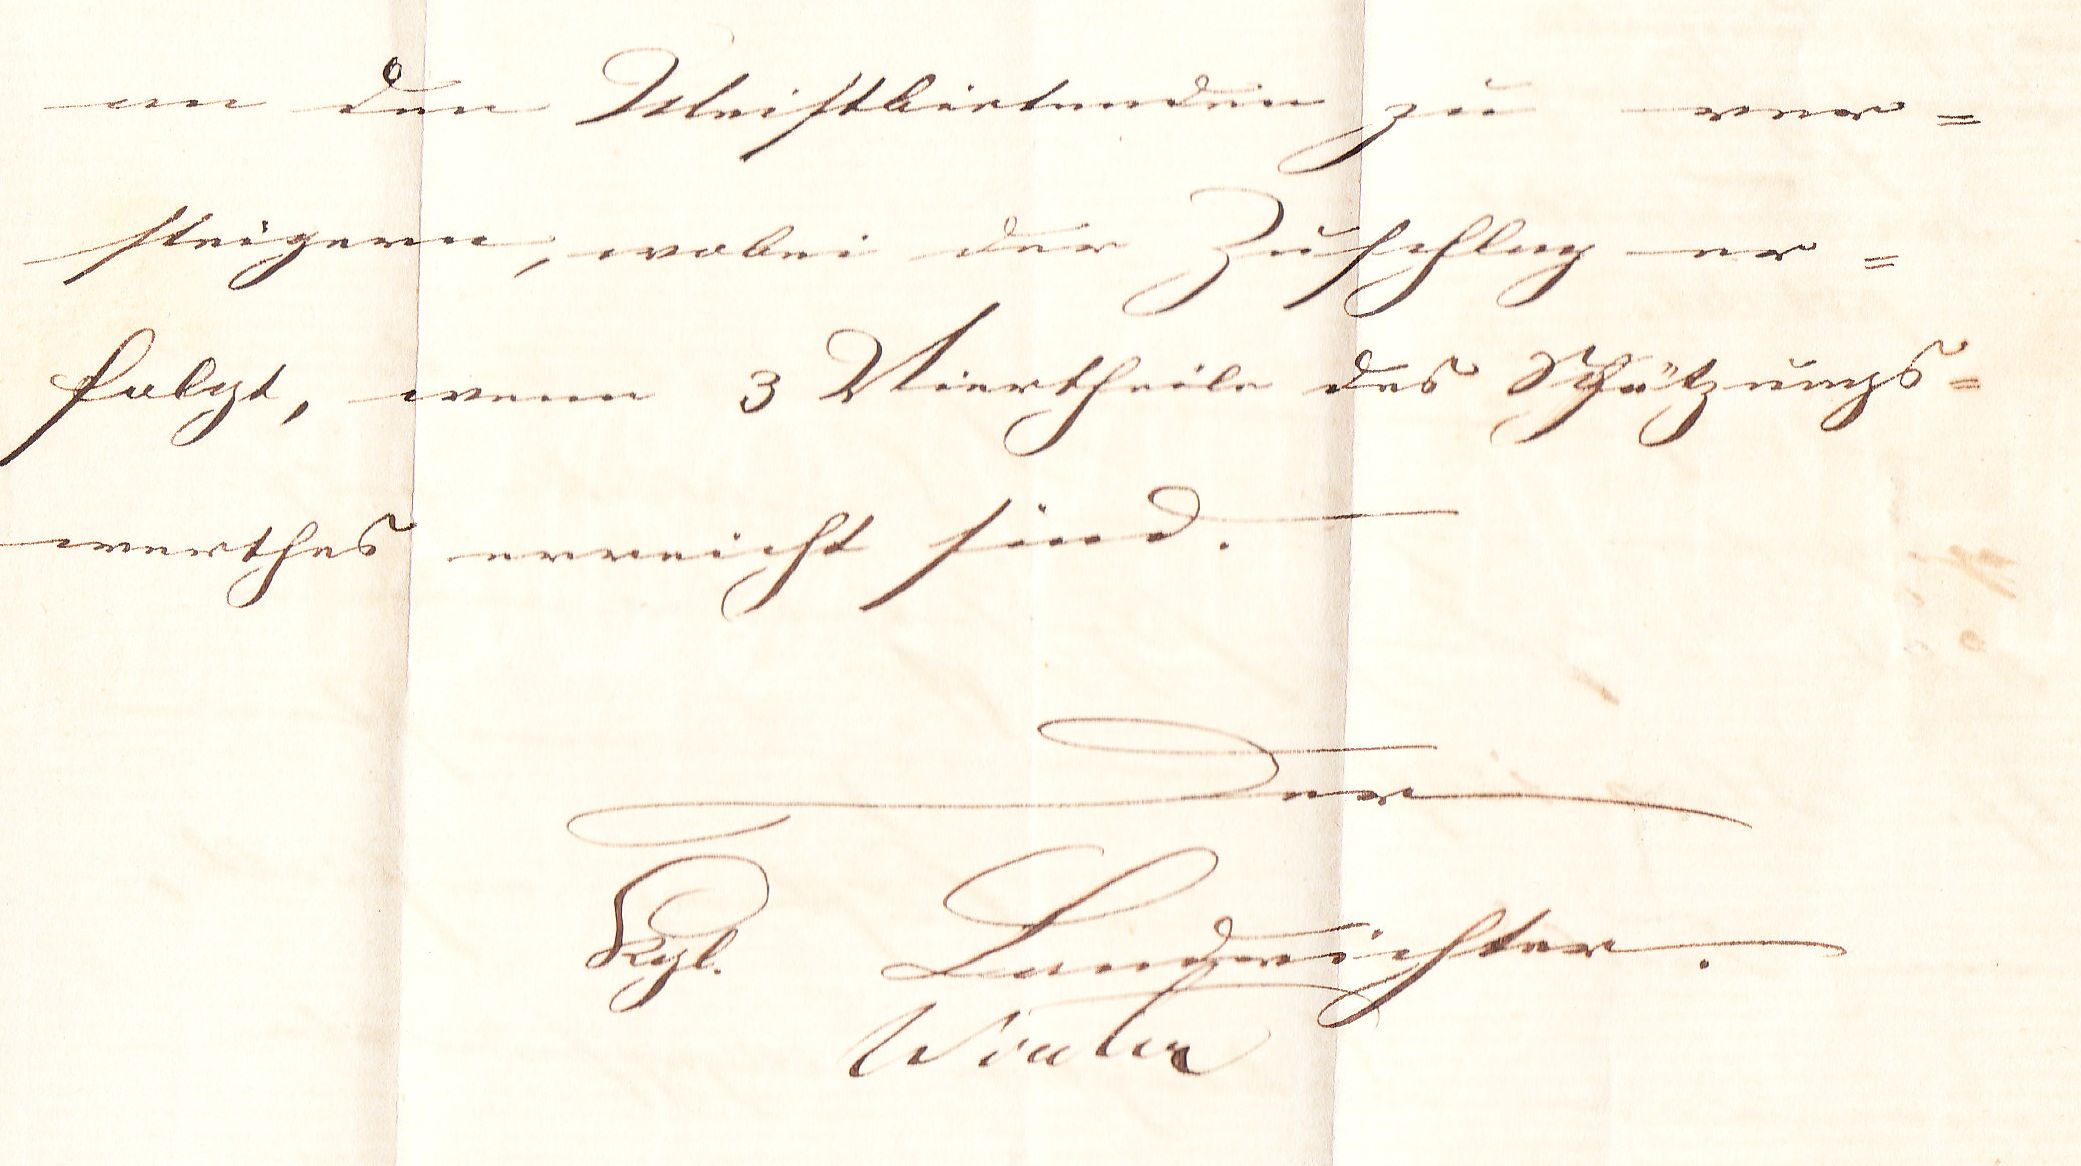 an den Meistbietenden zu ver=
steigern, wobei der Zuschlag er=
folgt, wenn 3 Viertheile des Schätzungs=
werthes erreicht sind.
Der
Kgl. Landrichter.
Winter